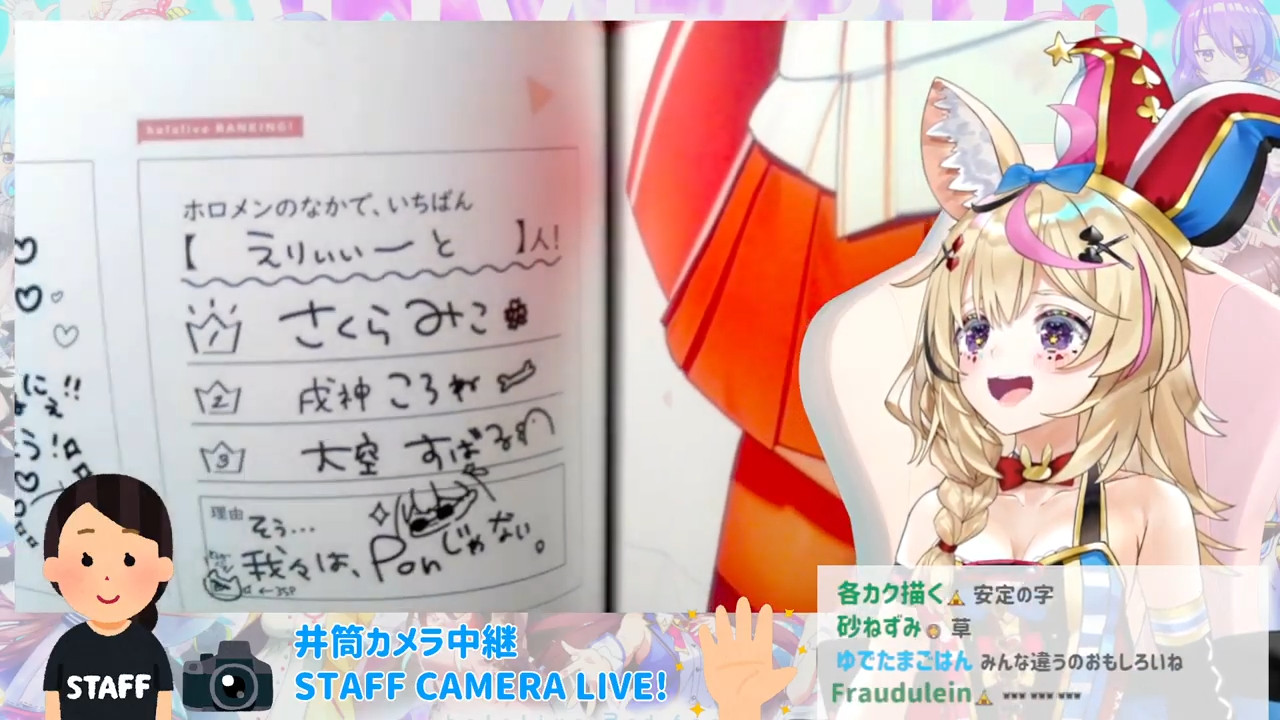 hololive RANKING!
ホロメンのなかで、いちばん
【えりぃぃーと】人!
1 さくらみこ
2 戌神ころね
3 大空すばる
理由
そう…
我々は、Ponじゃない。
←35P
STAFF
井筒カメラ中継
STAFF CAMERA LIVE!
各カク描く 安定の字
砂ねずみ 草
ゆでたまごはん みんな違うのおもしろいね
Fraudulein